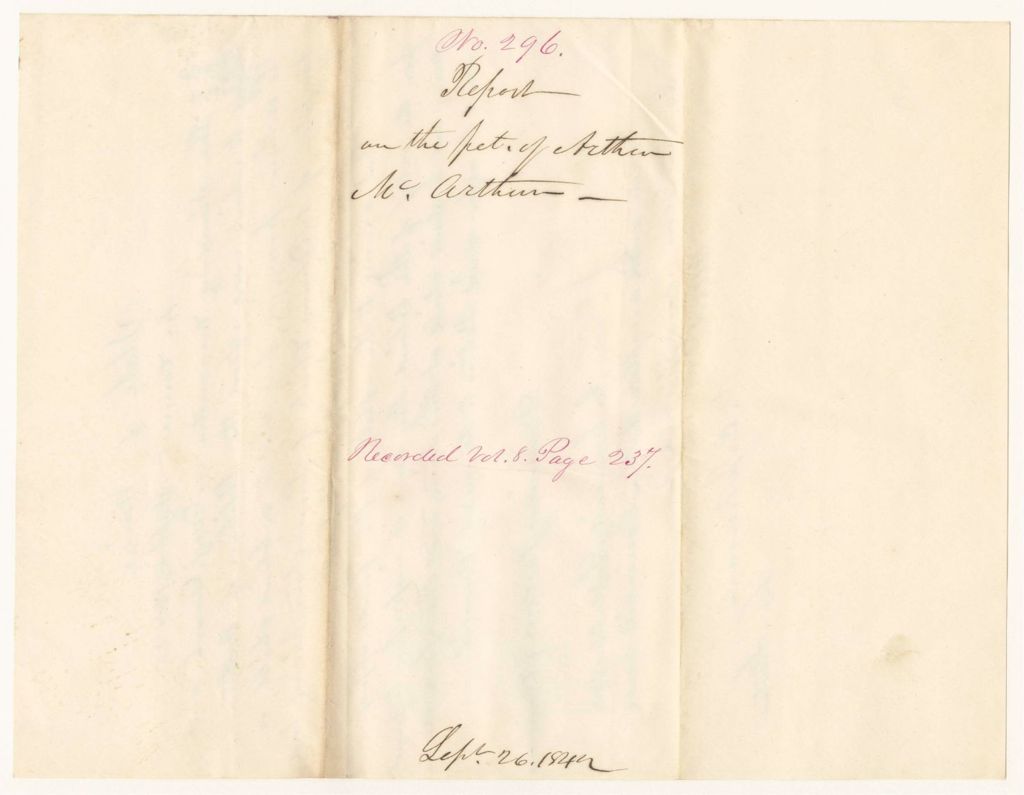 No. 296.
Report
on the pet. of Arthur
Mc. Arthur —
Recorded Vol. 8. Page 237.
Sept. 26. 1842